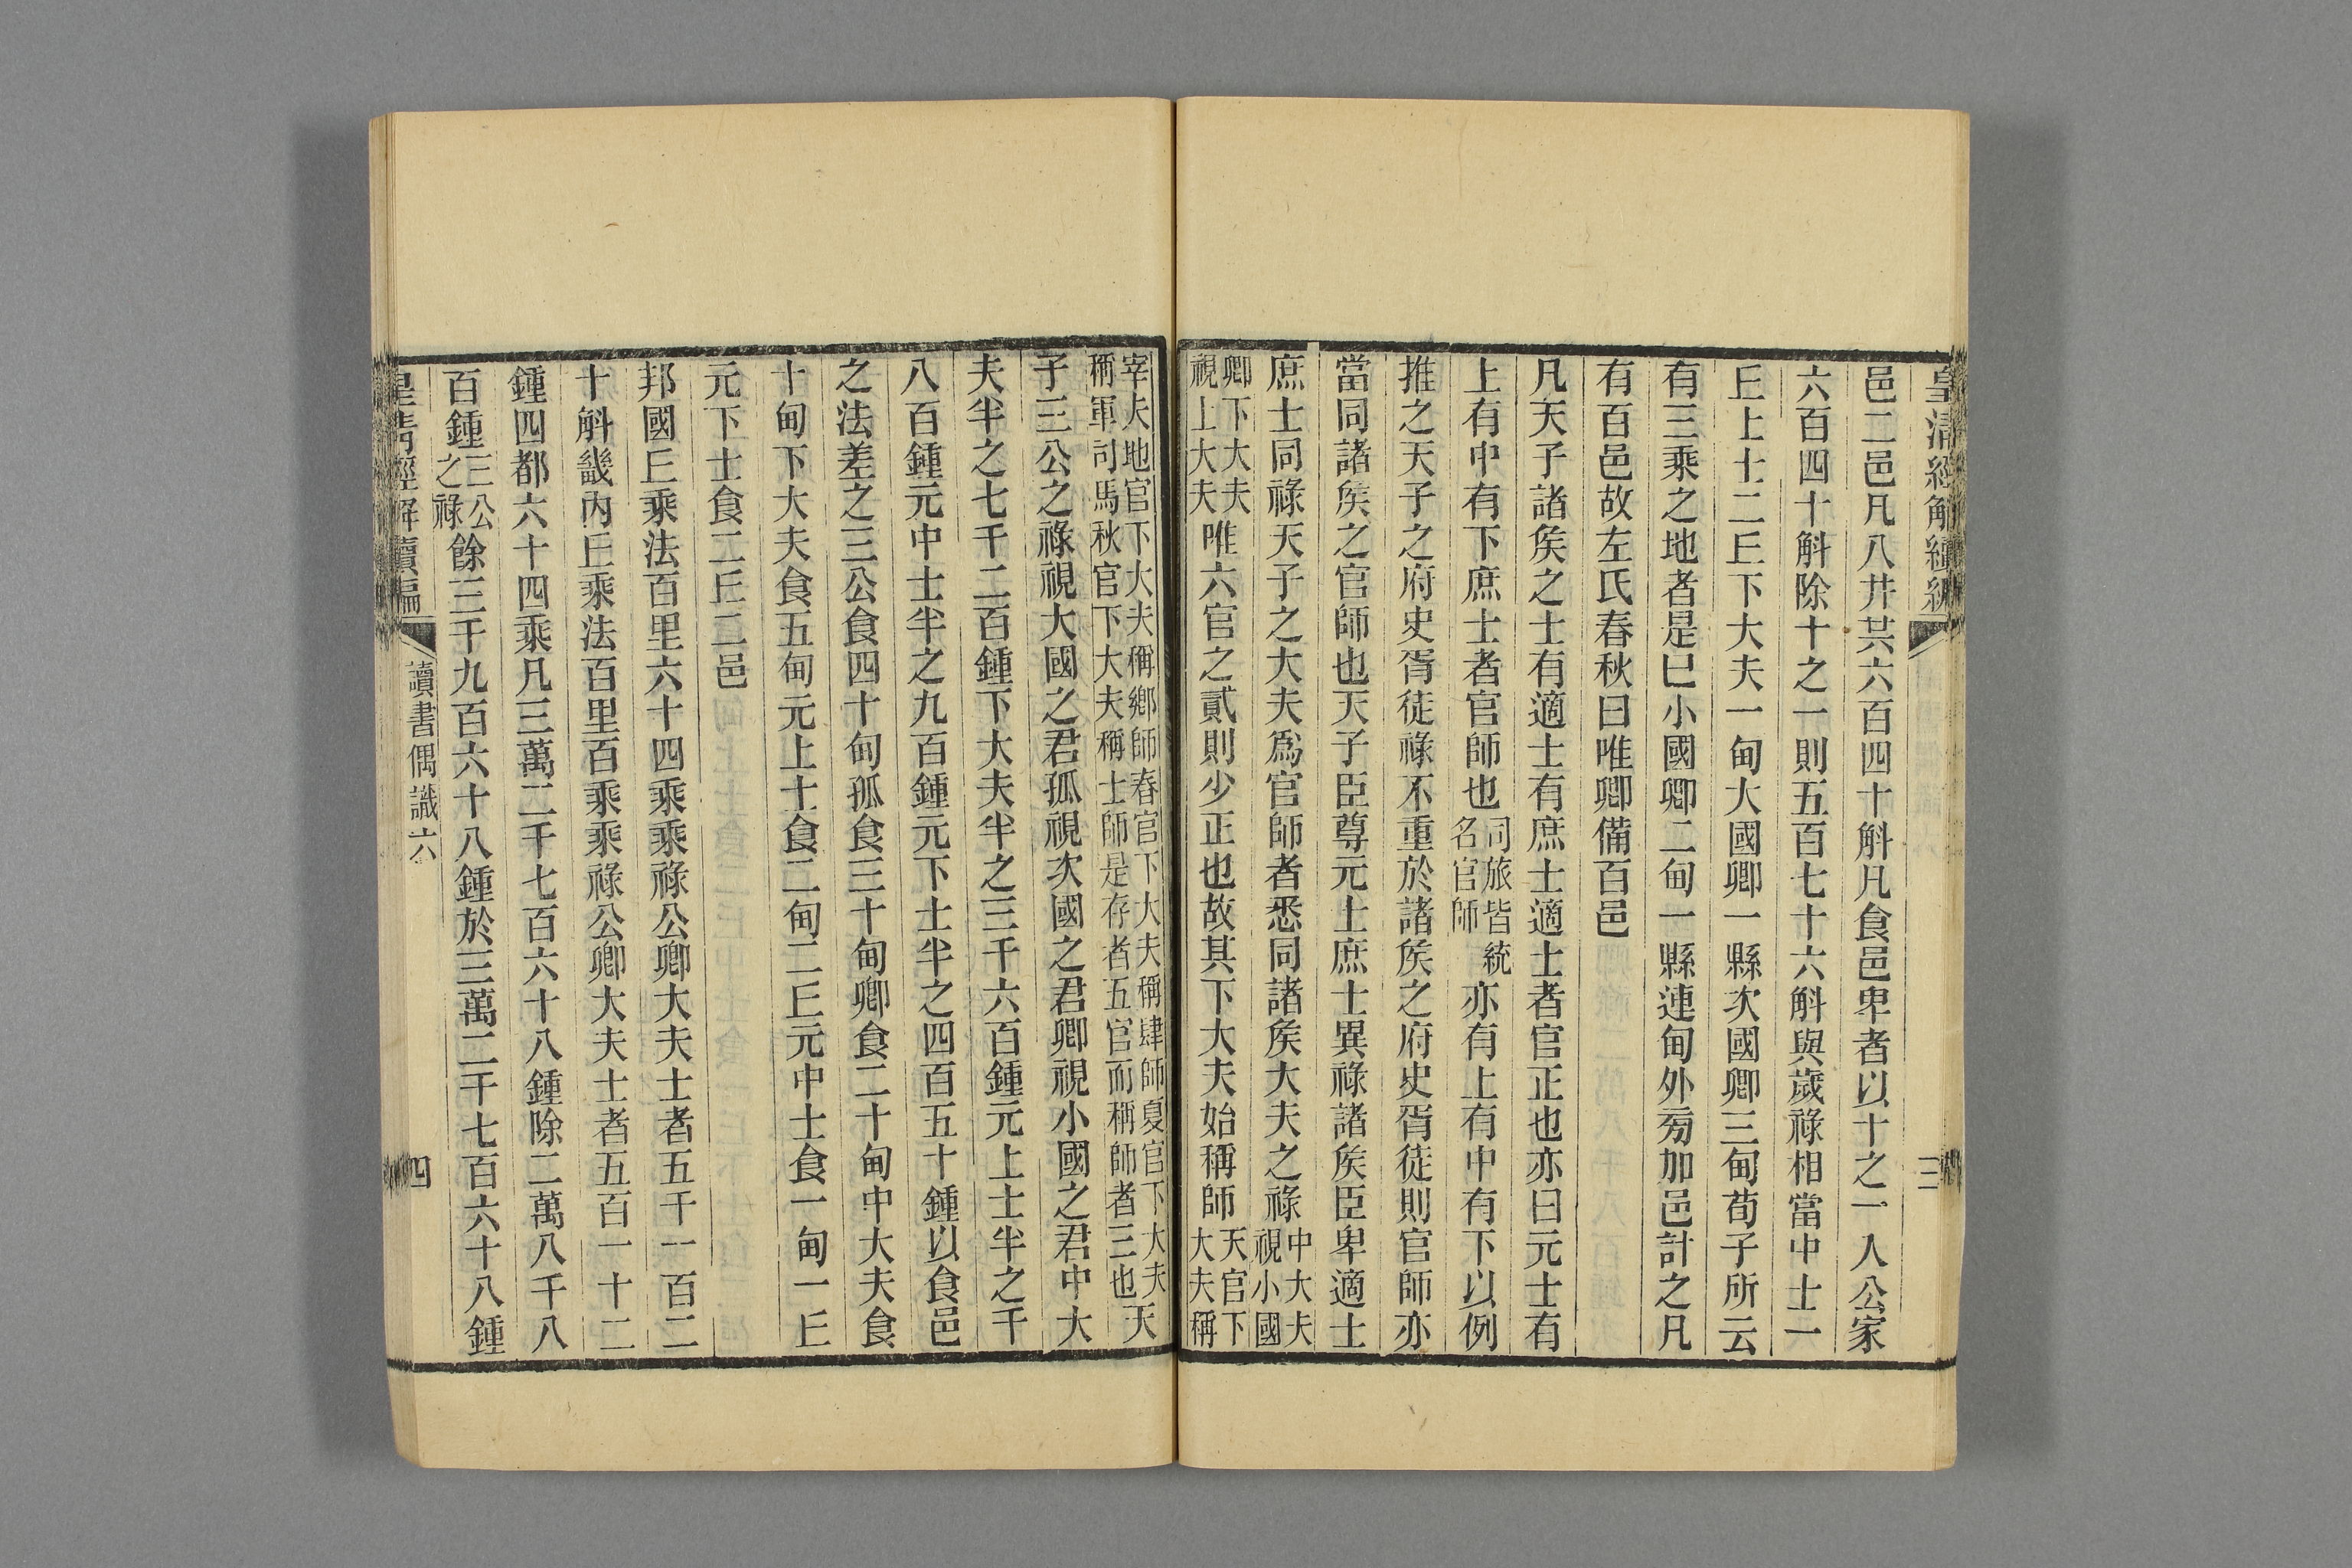 皇清經解續編
三
邑二邑凡八井共六百四十斛凡食邑卑者以十之一入公家
六百四十斛除十之一則五百七十六斛與歲祿相當中士一
𠀉上士二𠀉下大夫一甸大國卿一縣次國卿三甸荀子所云
有三乘之地者是巳小國卿二甸一縣連甸外旁加邑計之凡
有百邑故左氏春秋曰唯卿備百邑
凡天子諸矦之士有適士有庶士適士者官正也亦曰元士有
上有中有下庶士者官師也司旅皆統名官師亦有上有中有下以例
推之天子之府史胥徒祿不重於諸矦之府史胥徒則官師亦
當同諸矦之官師也天子臣尊元士庶士異祿諸矦臣卑適士
庶士同祿天子之大夫爲官師者悉同諸矦大夫之祿中大夫視小國
卿下大夫視上大夫唯六官之貳則少正也故其下大夫始稱師天官下大夫稱
宰夫地官下大夫稱鄉師春官下大夫稱肆師夏官下大夫稱軍司馬秋官下大夫稱士師是存者五官而稱師者三也天
子三公之祿視大國之君孤視次國之君卿視小國之君中大
夫半之七千二百鍾下大夫半之三千六百鍾元上士半之千
八百鍾元中士半之九百鍾元下士半之四百五十鍾以食邑
之法差之三公食四十甸孤食三十甸卿食二十甸中大夫食
十甸下大夫食五甸元上士食二甸二𠀉元中士食一甸一𠀉
元下士食二𠀉二邑
邦國𠀉乘法百里六十四乘乘祿公卿大夫士者五千一百二
十斛畿內𠀉乘法百里百乘乘祿公卿大夫士者五百一十二
鍾四都六十四乘凡三萬二千七百六十八鍾除二萬八千八
百鍾三公之祿餘三千九百六十八鍾於三萬二千七百六十八鍾
皇清經解續編
讀書偶識六
四